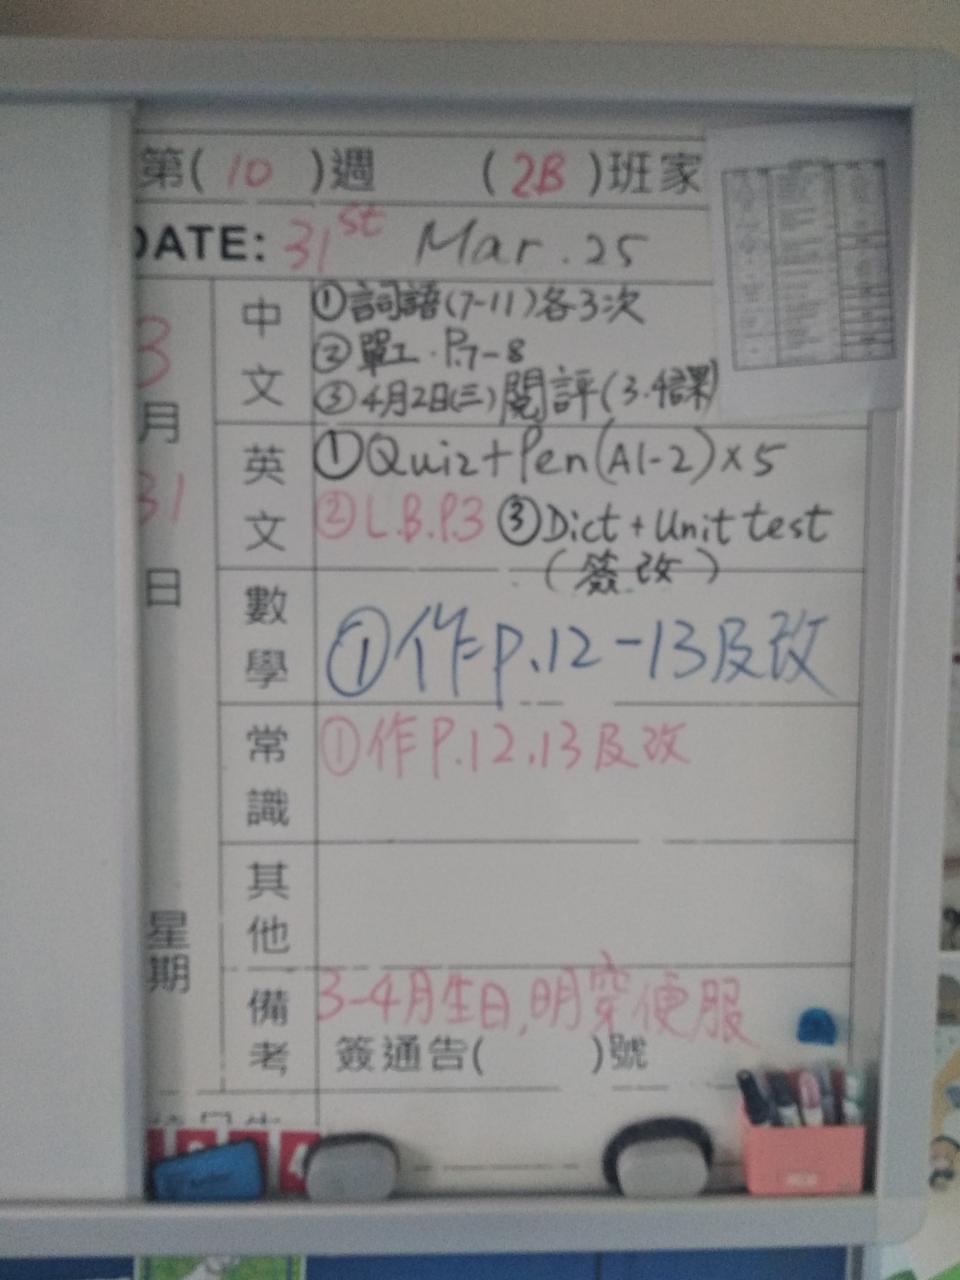 第( 10 )週 ( 2B )班家
DATE: 31st Mar. 25
3月31日
星期
中文
①詞語(7-11)各3次
②單工.P.7-8
③4月2日(三)閱評(3.4課)
英文
①Quiz+Pen(A1-2)×5
②L.B.P.3 ③Dict + Unit test
(簽.改)
數學
①作P.12-13及改
常識
①作P.12.13及改
其他
備考
3-4月生日,明穿便服
簽通告( )號